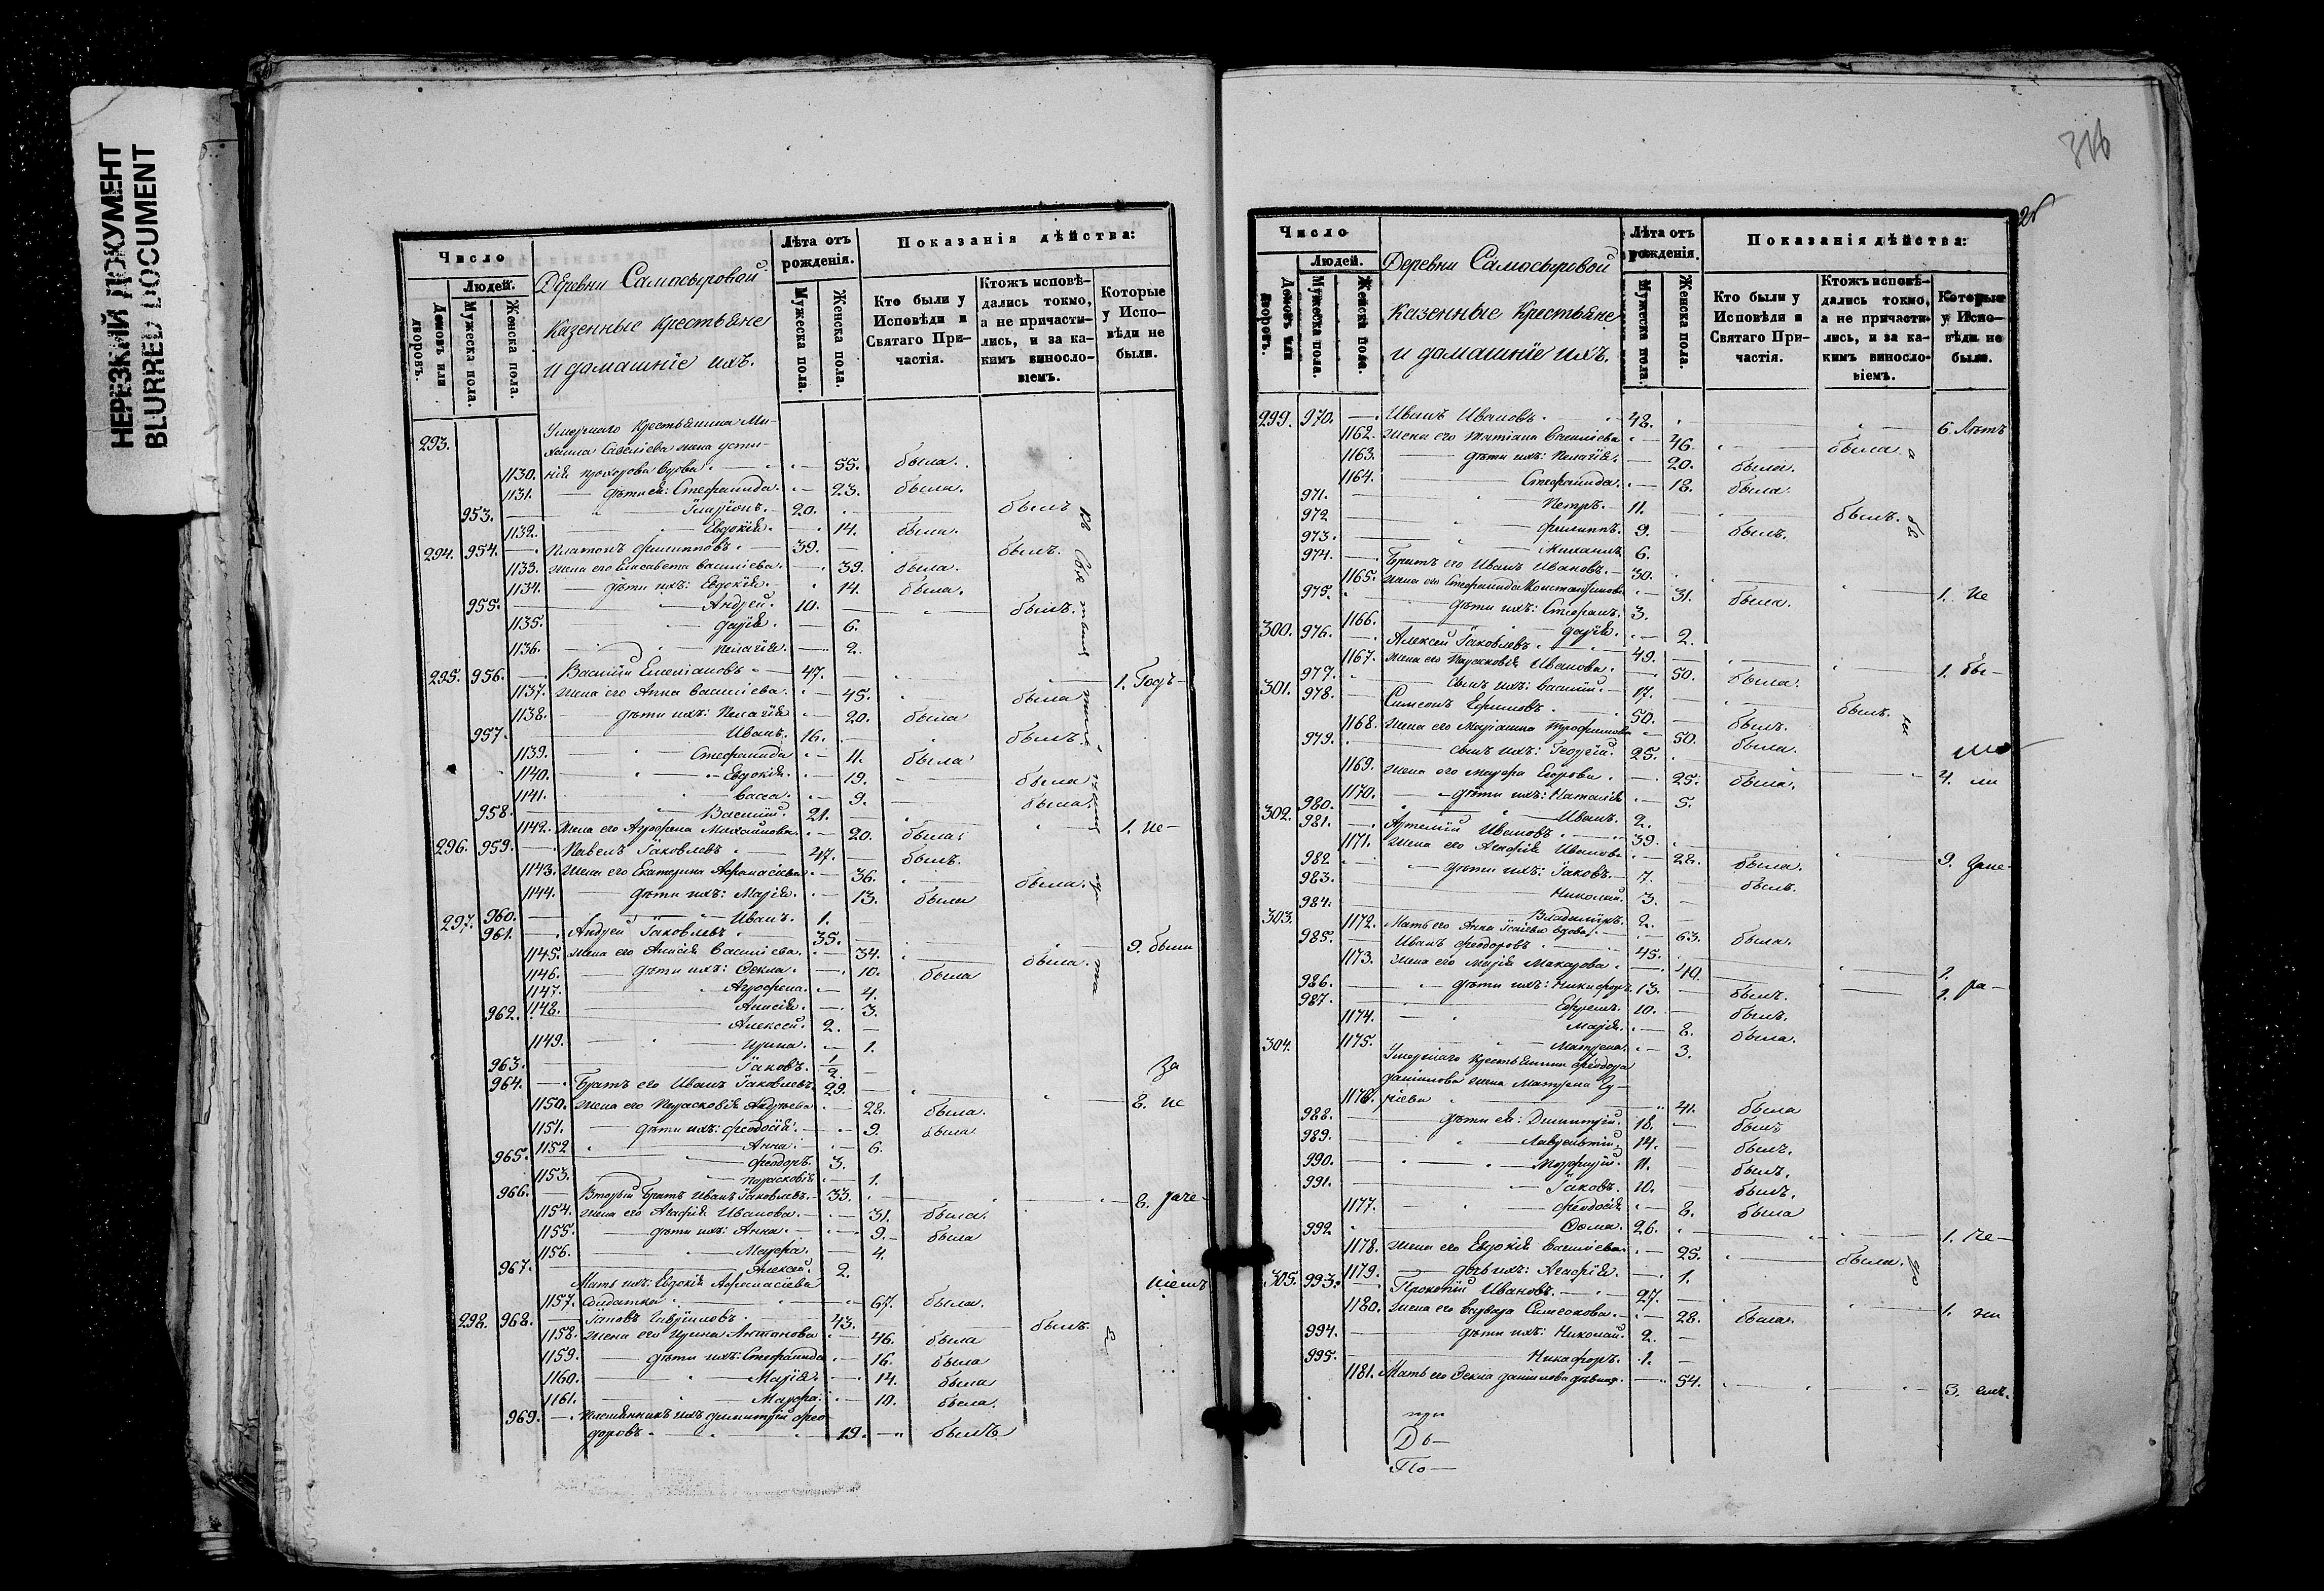 НЕРЕЗКИЙ ДОКУМЕНТ
BLURRED DOCUMENT
Число
Людей.
Домовъ или дворовъ.
Мужеска пола.
Женска пола.
Деревни Самосыровой
казенные крестьяне
и домашніе ихъ.
Лѣта отъ рожденія.
Мужеска пола.
Женска пола.
Показанія дѣйства:
Кто были у Исповѣди и Святаго Причастія.
Ктожъ исповѣдались токмо, а не причастились, и за какимъ винословіемъ.
Которые у Исповѣди не были.
293. Умершаго крестьянина Ми-
хаила Савеліева жена Усти-
1130. нія Прохорова вдова. 55. была.
1131. дѣти ей: Стефанида. 23. была.
953. Иларіонъ. 20. былъ
1132. Евдокія. 14. была.
294. 954. Платонъ Филипповъ. 39. былъ.
1133. Жена его Елисавета Васильева. 39. была.
1134. дѣти ихъ: Евдокія. 14. была.
955. Андрей. 10. былъ.
1135. Дарія. 6.
1136. Пелагія. 2.
295. 956. Василій Емеліановъ 47. 1. Годъ
1137. Жена его Анна Васильева. 45. была
1138. дѣти ихъ: Пелагія 20. была
957. Иванъ. 16. былъ.
1139. Стефанида 11. была
1140. Евдокія. 19. была
1141. Васса. 9. была.
958. Василій. 21.
1142. Жена его Агрофена Михайлова. 20. была. 1. не
296. 959. Павелъ Іаковлевъ 47. былъ.
1143. Жена его Екатерина Афанасіева 36. была.
1144. дѣти ихъ: Марія. 13. была
960. Иванъ. 1.
297. 961. Андрей Іаковлевъ 35. 9. были
1145. Жена его Анисія Васильева. 34. была.
1146. дѣти ихъ: Фекла. 10. была
1147. Агрофена. 4.
1148. Анисія. 3.
962. Алексей. 2.
1149. Ирина. 1.
963. Іаковъ. 2. за
964. Братъ его Иванъ Іаковлевъ. 29. 8. не
1150. Жена его Парасковія Андреева 28. была.
1151. дѣти ихъ: Феодосія. 9. была
1152 Анна. 6.
965. Феодоръ. 3.
1153. Парасковія. 1.
966. Вторый братъ Иванъ Іаковлевъ. 33. 8. раче
1154. Жена его Агафія Иванова. 31. была.
1155. дѣти ихъ: Анна. 9. была
1156. Марфа. 4.
967. Алексей. 2.
Мать ихъ: Евдокія Афанасіева ніемъ
1157. Солдатка 67. была.
298. 968. 43. былъ.
1158. Жена его Ирина Антонова 46. была
1159. дѣти ихъ: Стефанида 16. была
1160. Марія. 14. была
1161. Марфа. 10. была.
969. Племянникъ ихъ Димитрій Фео-
доровъ 19. былъ
316
Число
Людей.
Домовъ или дворовъ.
Мужеска пола.
Женска пола.
Деревни Самосыровой
казенные крестьяне
и домашніе ихъ.
Лѣта отъ рожденія.
Мужеска пола.
Женска пола.
Показанія дѣйства:
Кто были у Исповѣди и Святаго Причастія.
Ктожъ исповѣдались токмо, а не причастились, и за какимъ винословіемъ.
Которые у Исповѣди не были.
299. 970. Иванъ Ивановъ. 48. 6 Лѣтъ
1162. Жена его Татіана Васильева 46. была
1163. дѣти ихъ: Пелагія. 20. была.
1164. Стефанида. 18. была
971. Петръ. 11. былъ.
972 Филиппъ. 9. былъ.
973. Михаилъ 6.
974. Братъ его Иванъ Ивановъ. 30. 1. не
1165. Жена его Стефанида Константинова 31. была.
975. дѣти ихъ: Стефанъ. 3.
1166. Дарія. 2.
300. 976. Алексей Іаковлевъ 49. 1. бы-
1167. Жена его Парасковія Иванова. 50. была.
977. сынъ ихъ: Василій. 17. былъ.
301. 978. Симеонъ 50. былъ.
1168. Жена его Маріанна Трофимова 50. была.
979. сынъ ихъ: Георгій. 25. 4. ли
1169. Жена его Марфа Егорова. 25. была.
1170. дѣти ихъ: Наталія 5.
980. Иванъ. 2.
302. 981. Артемій Ивановъ 39. 9. ране
1171. Жена его Агафія Иванова 28. была.
982 дѣти ихъ: Іаковъ. 7. былъ.
983. Николай. 3.
984. Владиміръ. 2.
1172. Мать его Анна вдова. 63. была.
303. 985. Иванъ Феодоровъ 45. 1.
1173. Жена его Марія Макарова 40. 1. ра-
986. дѣти ихъ: Никифоръ. 13. былъ.
987. Ефремъ. 10. былъ.
1174. Марія. 8. была.
1175. Матрена. 3.
304. Умершаго крестьянина Феодора
Данилова жена Матрена Гу-
1176. ріева 41. была
988. дѣти ей: Димитрій. 18. былъ
989. Лаврентій. 14. былъ.
990. 11. былъ.
991. Іаковъ. 10. былъ.
1177. Феодосія. 8. была
992 Фома. 26. 1. не-
1178. Жена его Евдокія Васильева. 25. была.
1179. дочь ихъ: Агафія. 1.
305. 993. Прокопій Ивановъ. 27. 1. ни
1180. Жена его Варвара Симеонова. 28. была.
994. дѣти ихъ: Николай. 2.
995. Никифоръ. 1.
1181. Мать его Фекла Данилова 54. 3. емъ.